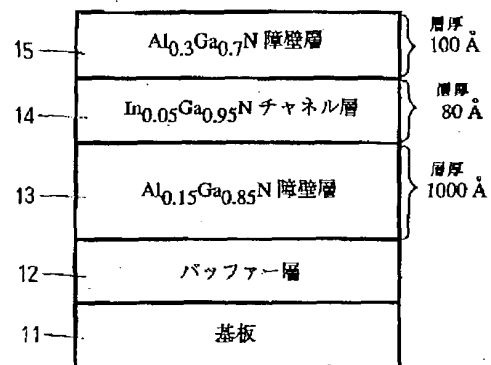 15 Al0.3Ga0.7N 障壁層 層厚 100 Å
14 In0.05Ga0.95N チャネル層 層厚 80 Å
13 Al0.15Ga0.85N 障壁層 層厚 1000 Å
12 バッファー層
11 基板